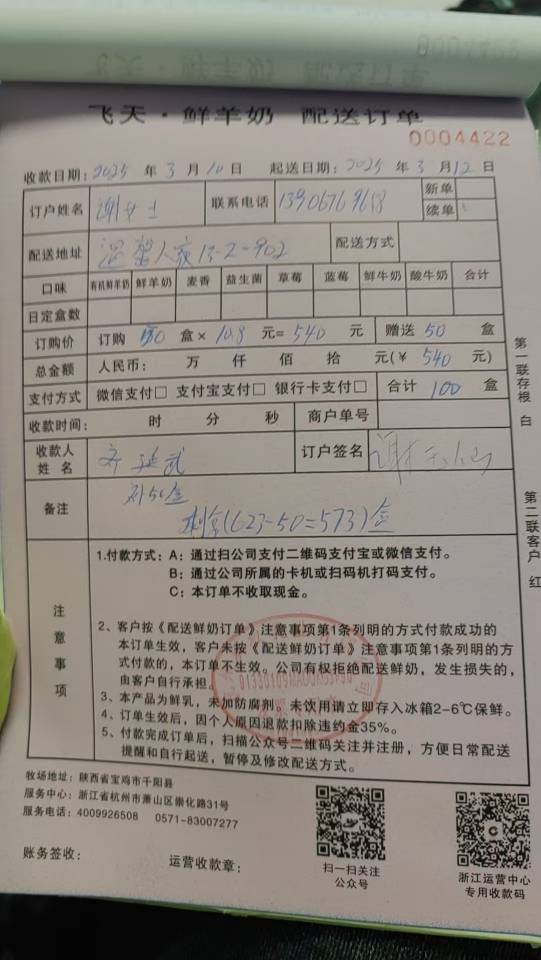 飞天·鲜羊奶 配送订单
0004422
收款日期：2025 年 3 月 10 日 起送日期：2025 年 3 月 12 日
订户姓名 谢女士 联系电话 新单
续单
配送地址 温馨人家13-2-902 配送方式
口味 有机鲜羊奶 鲜羊奶 麦香 益生菌 草莓 蓝莓 鲜牛奶 酸牛奶 合计
日定盒数
订购价 订购 50 盒× 10.8 元= 540 元 赠送 50 盒
总金额 人民币： 万 仟 佰 拾 元(￥ 540 元)
支付方式 微信支付□ 支付宝支付□ 银行卡支付□ 合计 100 盒
收款时间： 时 分 秒 商户单号
收款人
姓 名 订户签名
备注 补50盒
剩余(623-50=573)盒
注意事项
1.付款方式：A：通过扫公司支付二维码支付宝或微信支付。
B：通过公司所属的卡机或扫码机打码支付。
C：本订单不收取现金。
2、客户按《配送鲜奶订单》注意事项第1条列明的方式付款成功的
本订单生效，客户未按《配送鲜奶订单》注意事项第1条列明的方
式付款的，本订单不生效。公司有权拒绝配送鲜奶，发生损失的，
由客户自行承担。
3、本产品为鲜乳，未加防腐剂。未饮用请立即存入冰箱2-6℃保鲜。
4、订单生效后，因个人原因退款扣除违约金35%。
5、付款完成订单后，扫描公众号二维码关注并注册，方便日常配送
提醒和自行起送，暂停及修改配送方式。
第一联存根 白
第二联客户 红
牧场地址：陕西省宝鸡市千阳县
服务中心：浙江省杭州市萧山区崇化路31号
服务电话：4009926508 0571-83007277
账务签收： 运营收款章：
扫一扫关注
公众号
浙江运营中心
专用收款码